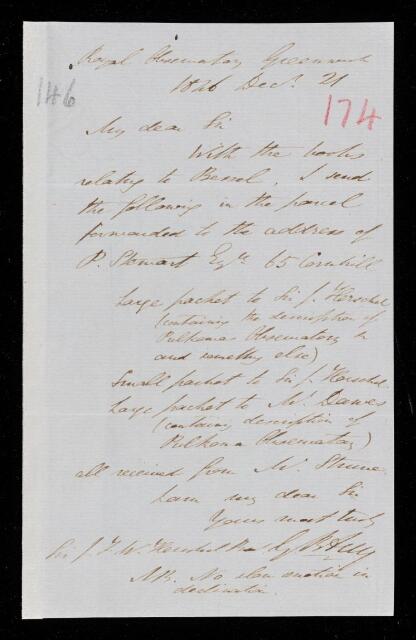 Royal Observatory Greenwich
1846 Decr. 21
146
174
My dear Sir
With the books
relating to Bessel, I send
the following in the parcel
forwarded to the address of
P. Stewart Esqre 65 Cornhill
Large packet to Sir J. Herschel
(containing the description of
Pulkowa Observatory &
and something else)
Small packet to Sir J. Herschel
Large packet to Mr. Dawes
(containing description of
Pulkowa Observatory)
all received from Mr. Struve
I am my dear Sir
Yours most truly
G B Airy
Sir J. F. W. Herschel Bart
NB. No slow motion in
declination.